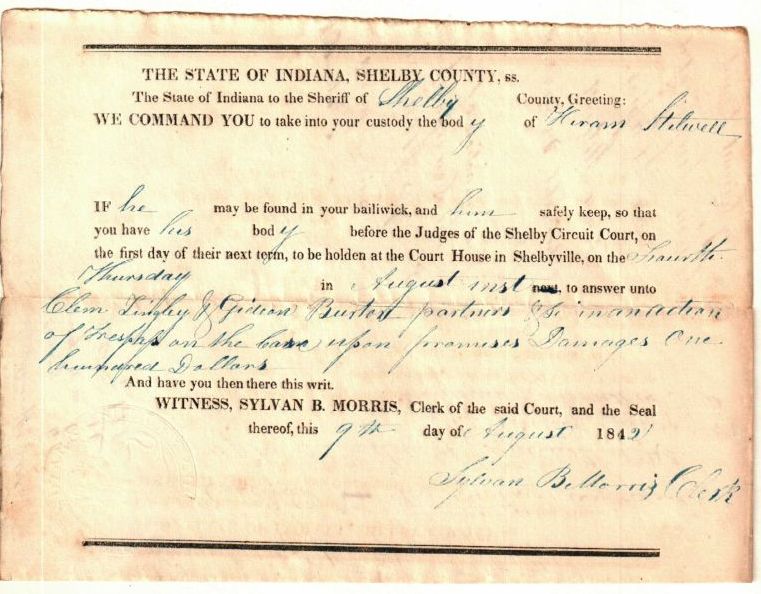 THE STATE OF INDIANA, SHELBY COUNTY, ss.
The State of Indiana to the Sheriff of Shelby County, Greeting:
WE COMMAND YOU to take into your custody the body of Hiram Stilwell
IF he may be found in your bailiwick, and him safely keep, so that
you have his body before the Judges of the Shelby Circuit Court, on
the first day of their next term, to be holden at the Court House in Shelbyville, on the Fourth
Thursday in August inst next, to answer unto
Clem & Gideon Burton partners &c in an action
of Tresps on the case upon promises Damages One
hundred Dollars
And have you then there this writ.
WITNESS, SYLVAN B. MORRIS, Clerk of the said Court, and the Seal
thereof, this 9th day of August 1842
Sylvan B. Morris Clerk